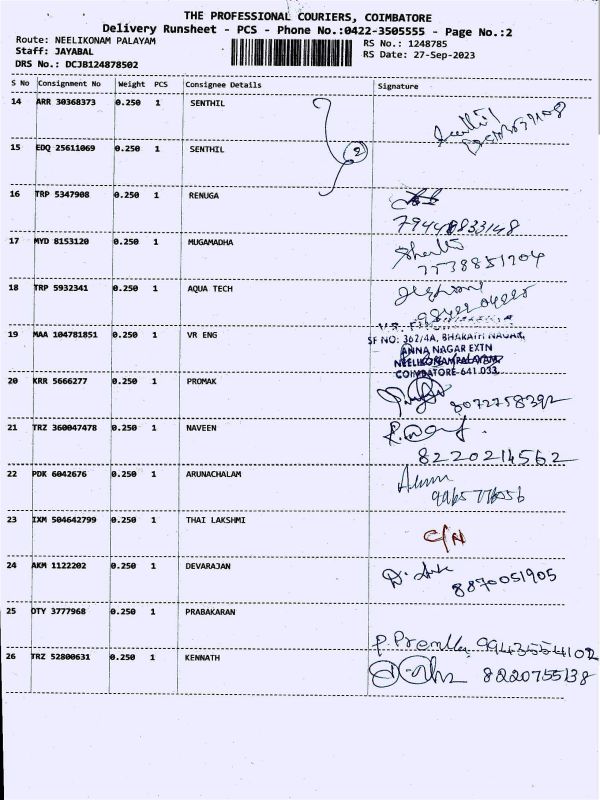 THE PROFESSIONAL COURIERS, COIMBATORE
Delivery Runsheet - PCS - Phone No.:0422-3505555 - Page No.:2
Route: NEELIKONAM PALAYAM
RS No.: 1248785
Staff: JAYABAL
RS Date: 27-Sep-2023
DRS No.: DCJB124878502
S No Consignment No Weight PCS Consignee Details Signature
14 ARR 30368373 0.250 1 SENTHIL
15 EDQ 25611069 0.250 1 SENTHIL 2
16 TRP 5347908 0.250 1 RENUGA
17 MYD 8153120 0.250 1 MUGAMADHA
7538851704
18 TRP 5932341 0.250 1 AQUA TECH
19 MAA 104781851 0.250 1 VR ENG
SF NO: 362/4A, BHARATHI NAGAR,
ANNA NAGAR EXTN
NEELIKONAMPALAYAM,
COIMBATORE-641 033.
20 KRR 5666277 0.250 1 PROMAK
8072758392
21 TRZ 360047478 0.250 1 NAVEEN
8220214562
22 PDK 6042676 0.250 1 ARUNACHALAM
23 IXM 504642799 0.250 1 THAI LAKSHMI
C/N
24 AKM 1122202 0.250 1 DEVARAJAN
8870051905
25 OTY 3777968 0.250 1 PRABAKARAN
26 TRZ 52800631 0.250 1 KENNATH
8220755138